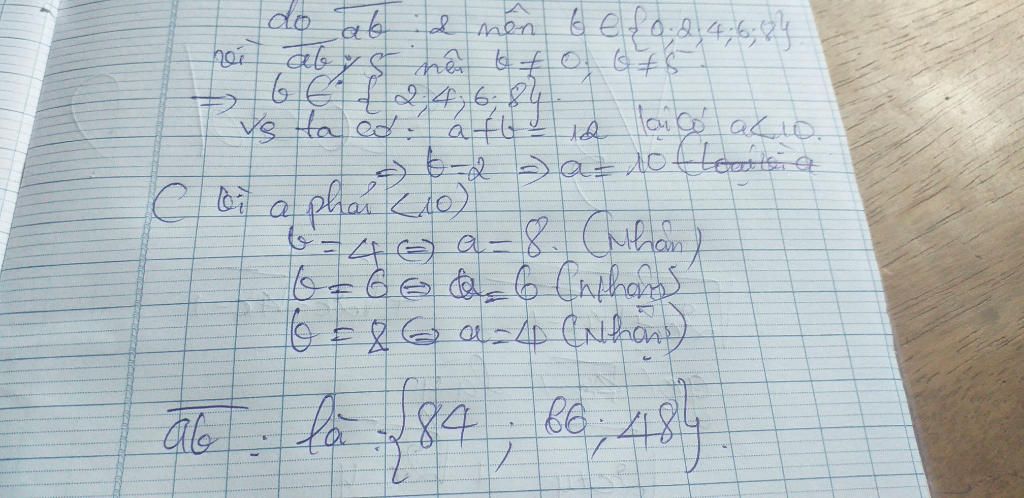 do ab ⋮ 2 nên b ∈ {0; 2; 4; 6; 8}
ab ⋮̸ 5 nên b ≠ 0; b ≠ 5.
=> b ∈ {2; 4; 6; 8}.
Vs ta có: a + b = 12 lại có a < 10.
=> b = 2 => a = 10
( Vì a phải < 10)
b = 4 <=> a = 8. (Nhận)
b = 6 <=> a = 6 (Nhận)
b = 8 <=> a = 4 (Nhận)
ab : là : {84 ; 66 ; 48}.